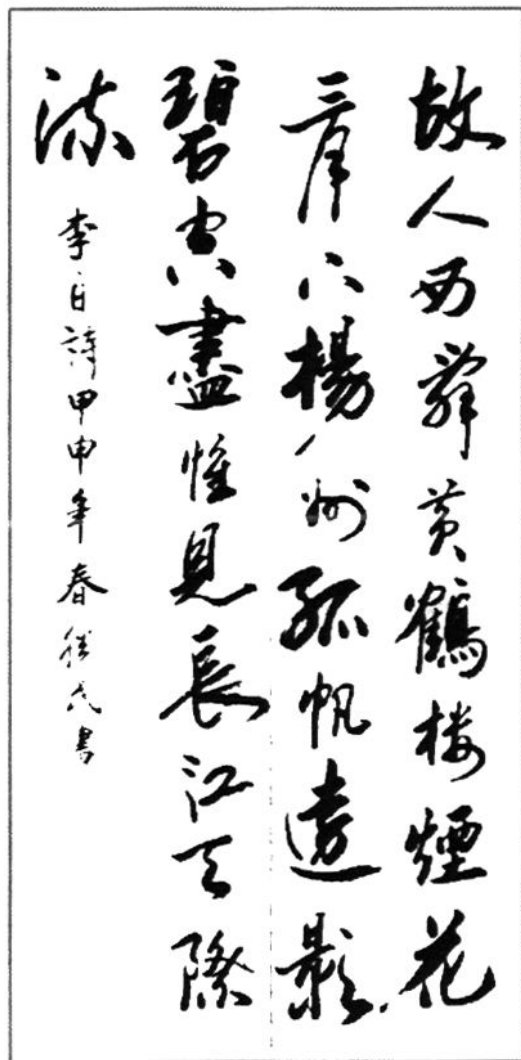 故人西辭黄鶴楼煙花
三月下楊州孤帆遠影
碧空盡惟見長江天際
流
李白詩甲申年春民書